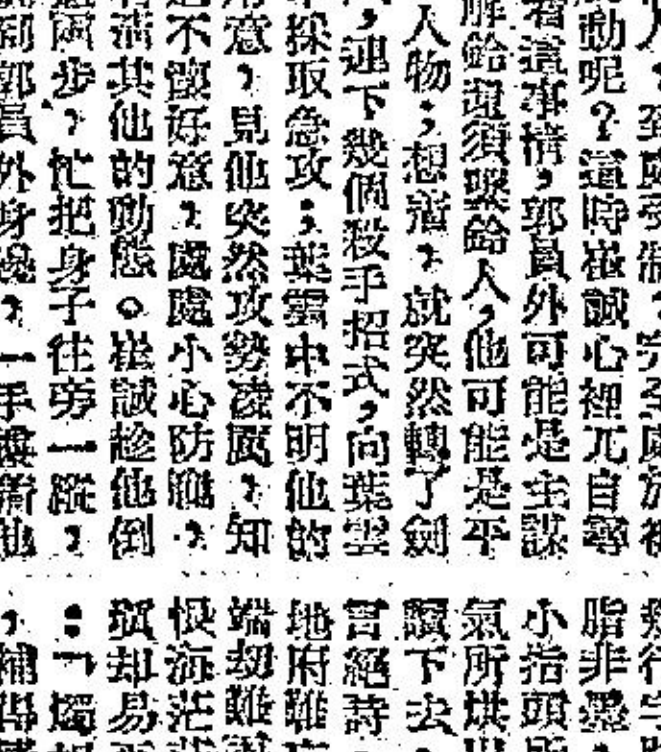 動呢？這時崔誠心裡兀自尋
着這事情，郭員外可能是主謀
解鈴還須繫鈴人，他可能是平
人物；想着，就突然轉了劍
，連下幾個殺手招式，向葉雲
採取急攻；葉雲中不明他的
意，見他突然攻勢凌厲，知
不懷好意，處處小心防範，
清其他的動態。崔誠趁他倒
兩步，忙把身子往旁一縱，
到郭員外身邊，一手摟着他
脂非墨
小指頭
氣所烘
讀下去
言絕詩
地府難
端劫難
恨海茫
却易
：「燭
，補